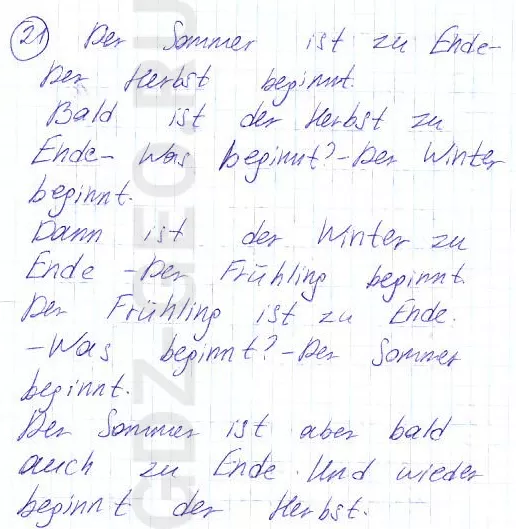 21 Der Sommer ist zu Ende-
Der Herbst beginnt.
Bald ist der Herbst zu
Ende- Was beginnt?-Der Winter
beginnt.
Dann ist der Winter zu
Ende -Der Frühling beginnt.
Der Frühling ist zu Ende.
-Was beginnt?-Der Sommer
beginnt.
Der Sommer ist aber bald
auch zu Ende. Und wieder
beginnt der Herbst.
GDZ-GEO.RU